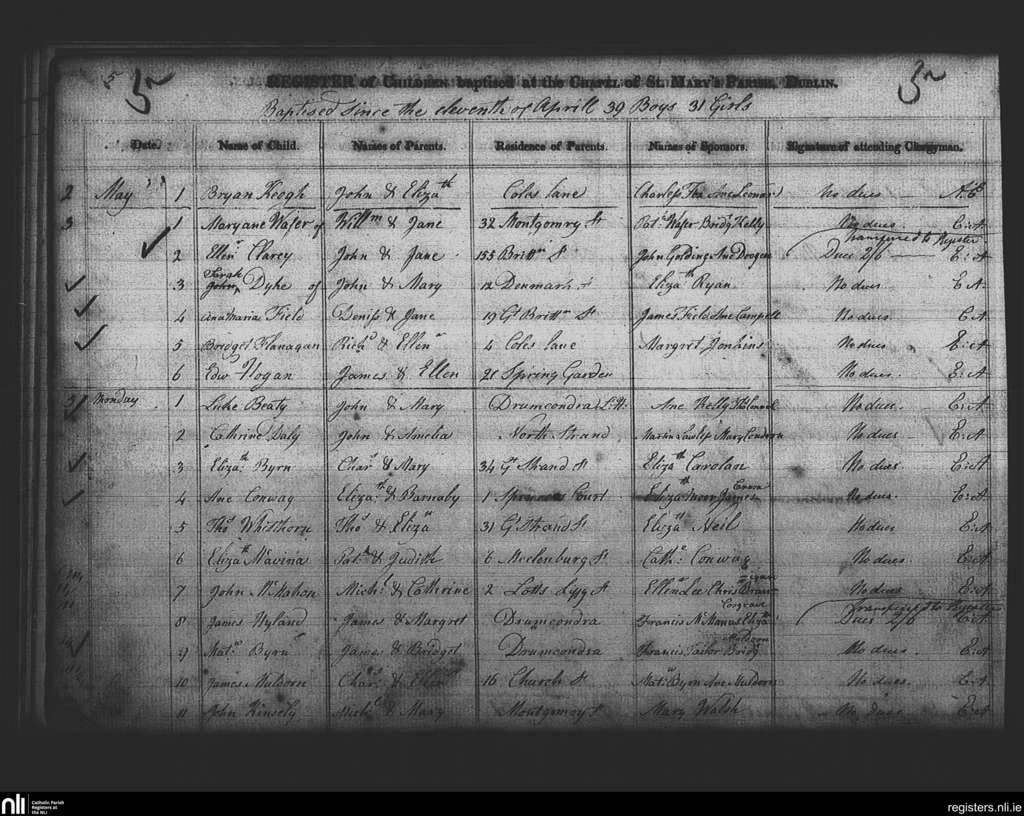 5 5 5
REGISTER of CHILDREN baptised at the CHAPEL of ST. MARY'S PARISH, DUBLIN.
Baptised since the eleventh of Aprill 39 Boys 31 Girls
Date. Name of Child. Names of Parents. Residence of Parents. Names of Sponsors. Signature of attending Clergyman.
2 May 1 Bryan Keogh John & Elizath Coles Lane Charless No dues A:B
3 1 Maryane Wafer of Willm & Jane 32 Montgomry St Patk Wafer Bridy Kelly No dues. E:A
Transfered to Register
2 Ellen Clarey John & Jane 155 Brittn St John Golding Ane Deegan Dues 2/6 E:A
Sarah
3 John Dyke of John & Mary 12 Denmark St Elizath Ryan No dues E:A
4 Anamaria Field Deniss & Jane 19 Gt Brittn St James Field Ane Campell No dues. E:A
5 Bridget Flanagan Richd & Ellen 4 Coles Lane Margret Jenkins No dues E:A
6 Edwd Hogan James & Ellen 21 Spring Garden No dues. E:A
3 Monday 1 Luke Beaty John & Mary Drumcondra Ane Kelly No dues. E:A
2 Cathrine Daly John & Amelia North Strand Martin Lawless Mary No dues E:A
3 Elizath Byrn Chars & Mary 34 Gt Strand St Elizath Carolan No dues E:A
4 Ane Conway Elizath & Barnaby 1 Court Elizath James No dues. E:A
5 Thos Whitthorn Thos & Eliza 31 Gt Strand St Eliza Neil No dues E:A
6 Elizath Mavina Patk & Judith 6 Meclenburg St Cathe Conway No dues. E:A
7 John McMahon Michl & Cathrine 2 Lotts Liffy St Ellen Lee Chris No dues E:A
Transfered to Register
8 James Hyland James & Margret Drumcondra Francis McManus Elizath Corgrave Dues 2/6 E:A
9 Byrn James & Bridget Drumcondra Francis Tailor Bridgt Muldoon No dues. E:A
10 James Muldorn Chars & Ellen 16 Church St Byrn Ane Muldorn No dues. E:A
11 John Kinsely Michl & Mary Montgomry St Mary Walsh No dues E:A
nli Catholic Parish Registers at the NLI
registers.nli.ie